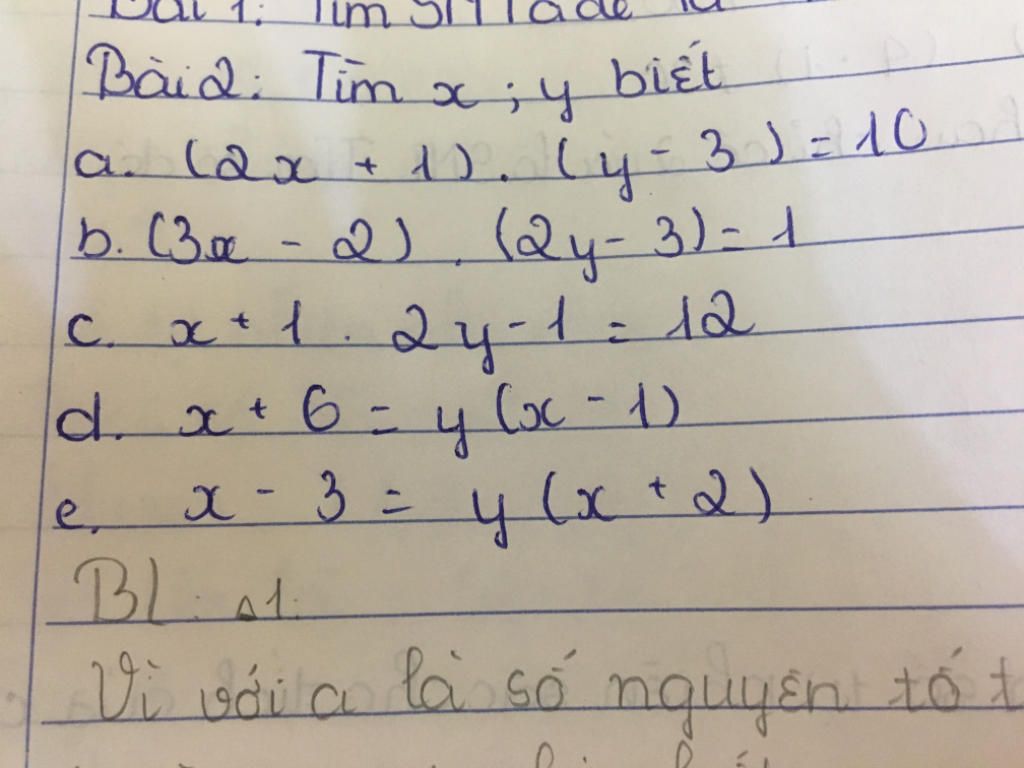 Bài 1: Tìm
Bài 2: Tìm x ; y biết
a. (2x + 1) . (y - 3) = 10
b. (3x - 2) . (2y - 3) = 1
c. x + 1 . 2y - 1 = 12
d. x + 6 = y (x - 1)
e. x - 3 = y (x + 2)
BL: 1:
Vì với a là số nguyên tố